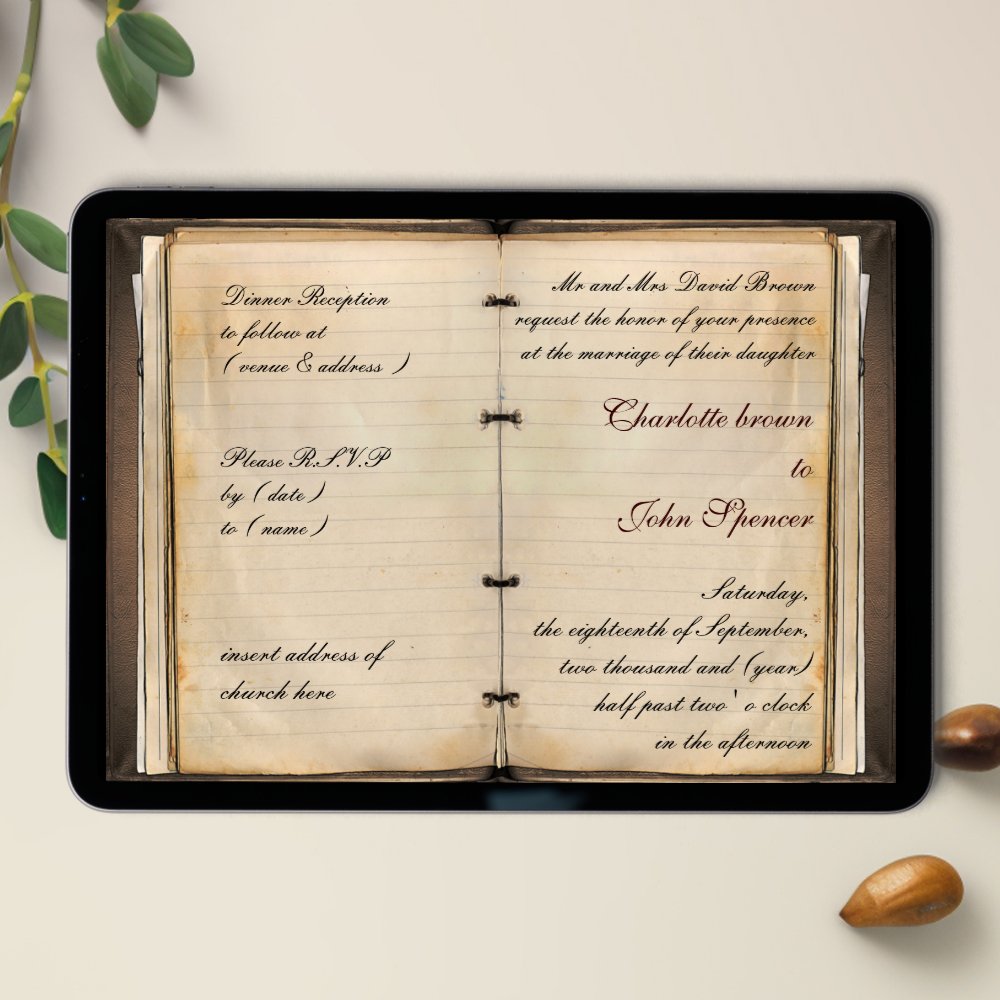 Dinner Reception
to follow at
( venue & address )
Please R.S.V.P
by ( date )
to ( name )
insert address of
church here
Mr and Mrs David Brown
request the honor of your presence
at the marriage of their daughter
Charlotte brown
to
John Spencer
Saturday,
the eighteenth of September,
two thousand and (year)
half past two' o clock
in the afternoon